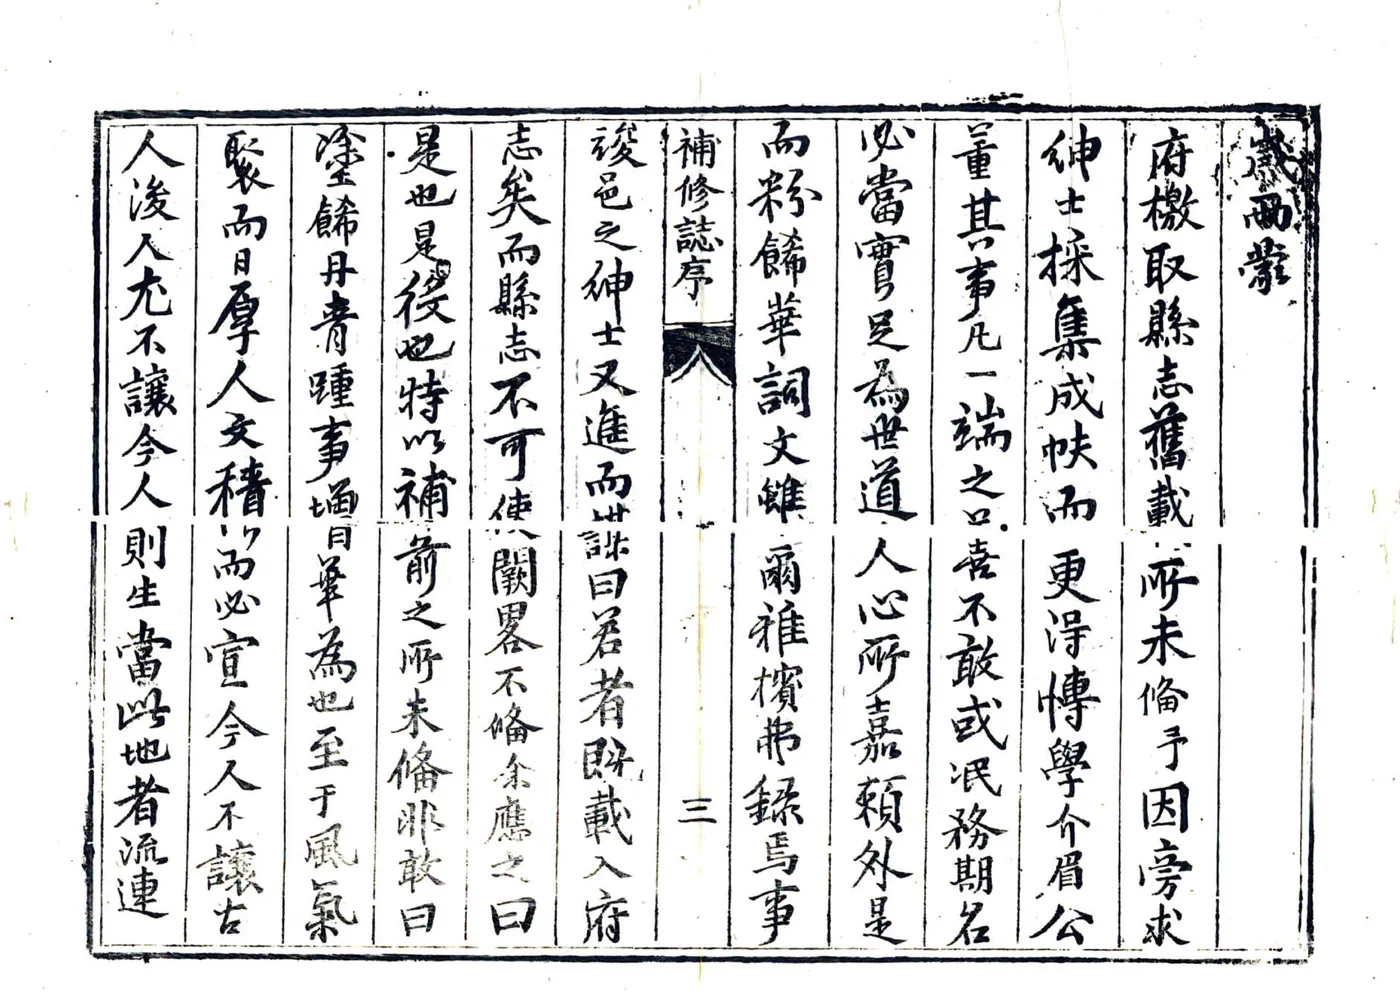 歲丙辰
府檄取縣志舊載所未俻予因旁求
紳士採集成帙而更得博學介眉公
董其事凡一端之口喜不敢或泯務期名
必當實足為世道人心所嘉賴外是
而粉餙華詞文雖爾雅擯弗録焉事
補修誌序
三
竣邑之紳士又進而謀曰若者既載入府
志矣而縣志不可使闕畧不俻余應之曰
是也是役也特以補前之所未俻非敢曰
塗餙丹青踵事增華為也至于風氣
聚而日厚人文積以而必宣今人不讓古
人後人尤不讓今人則生當此地者流連